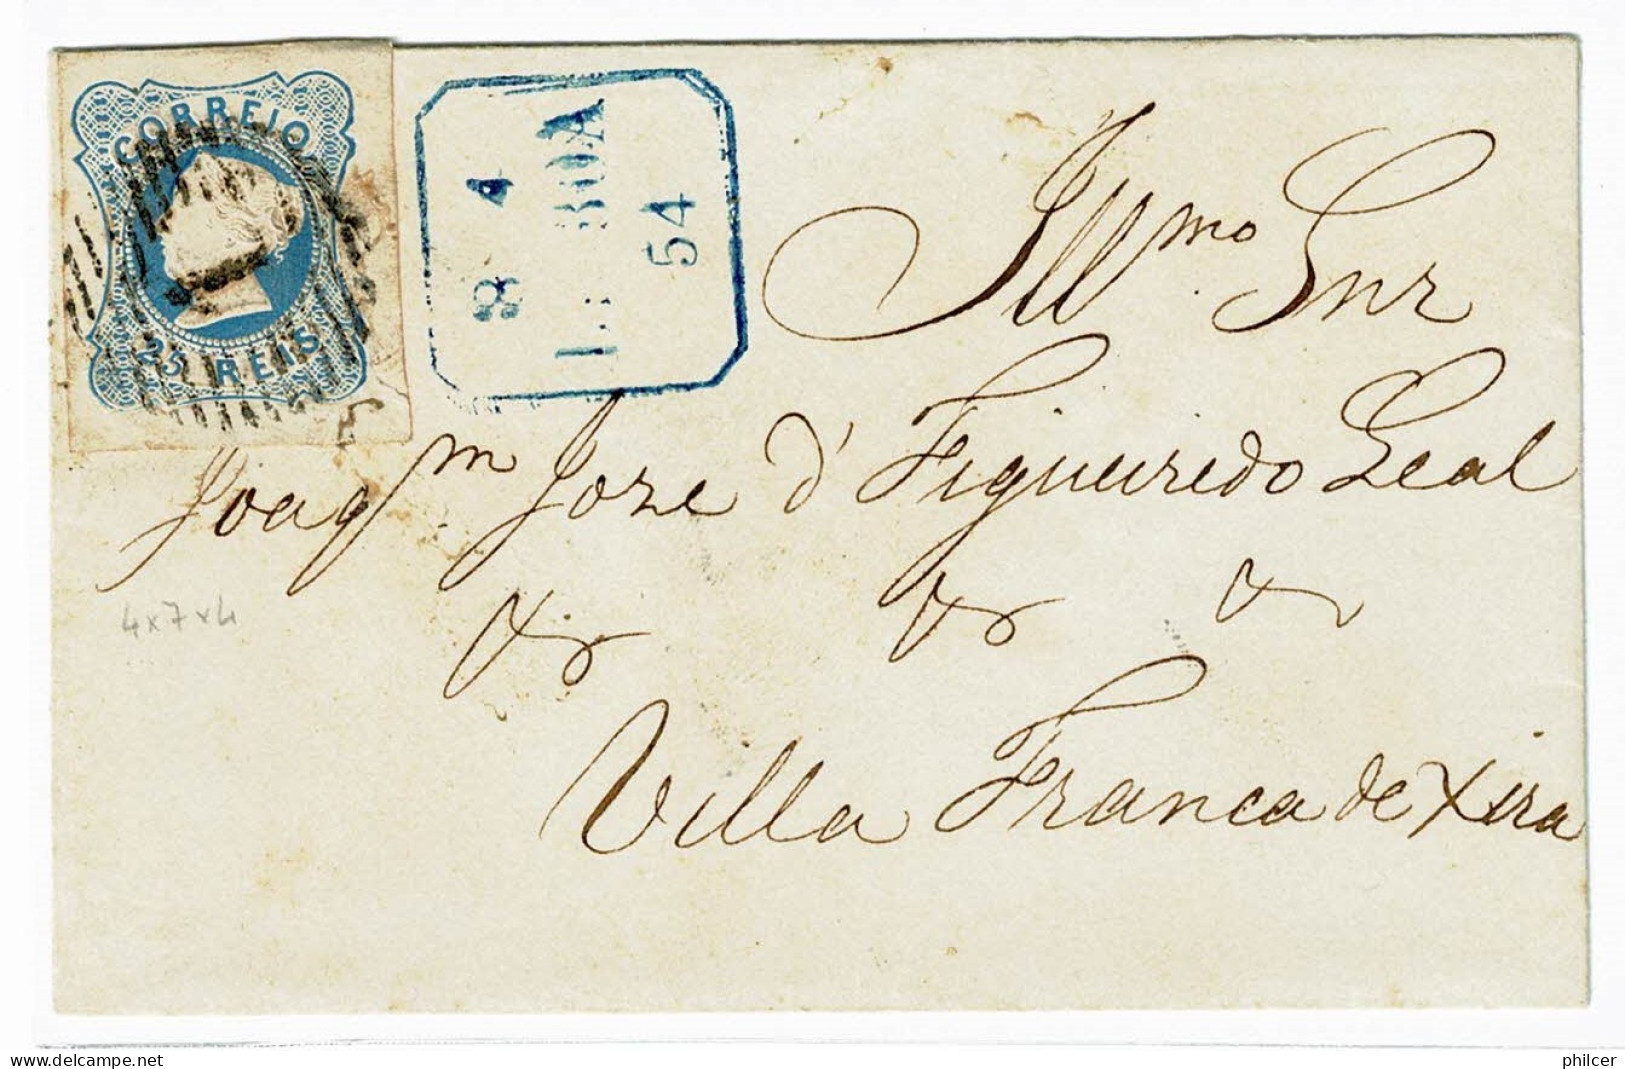 CORREIO
25 REIS
8 4
LISBOA
54
Illmo. Snr
Joaqm. Joze d' Figueiredo Leal
& & &
Villa Franca de Xira
4x7x4
delcampe.net
philcer